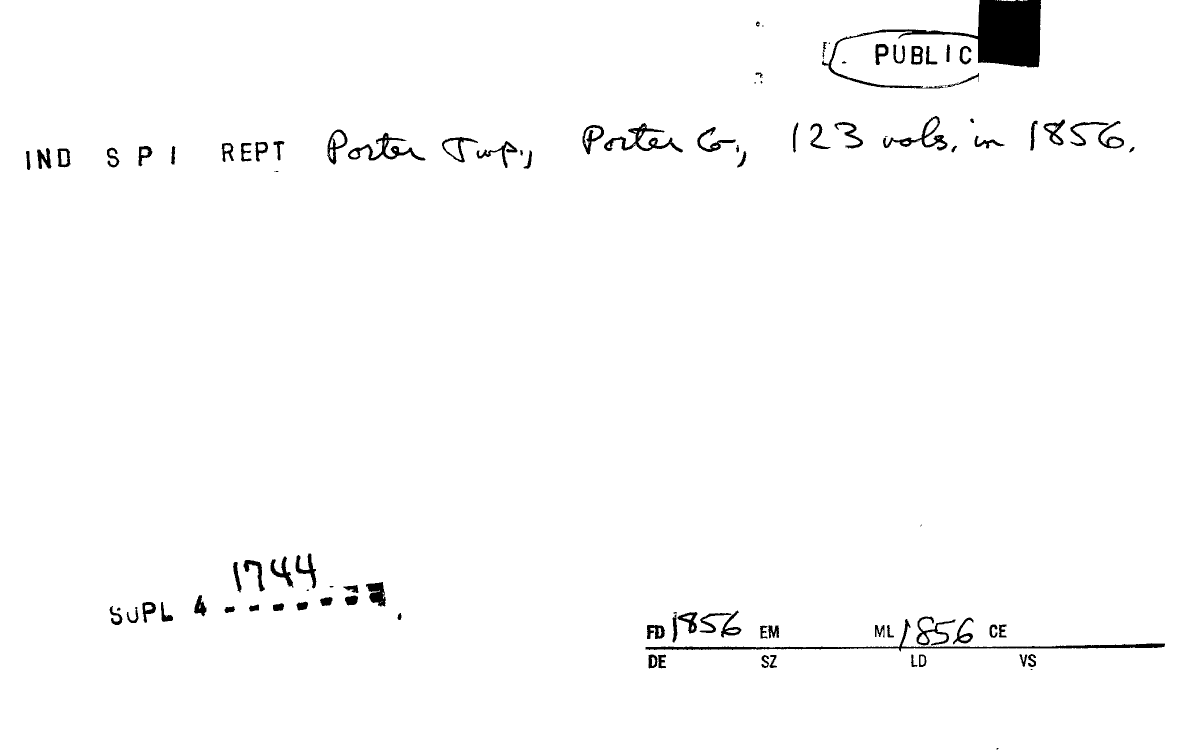 PUBLIC
IND S P I REPT Porter Twp., Porter Co., 123 vols. in 1856.
1744
SUPL 4 - - - - - - -
FD 1856 EM ML 1856 CE
DE SZ LD VS